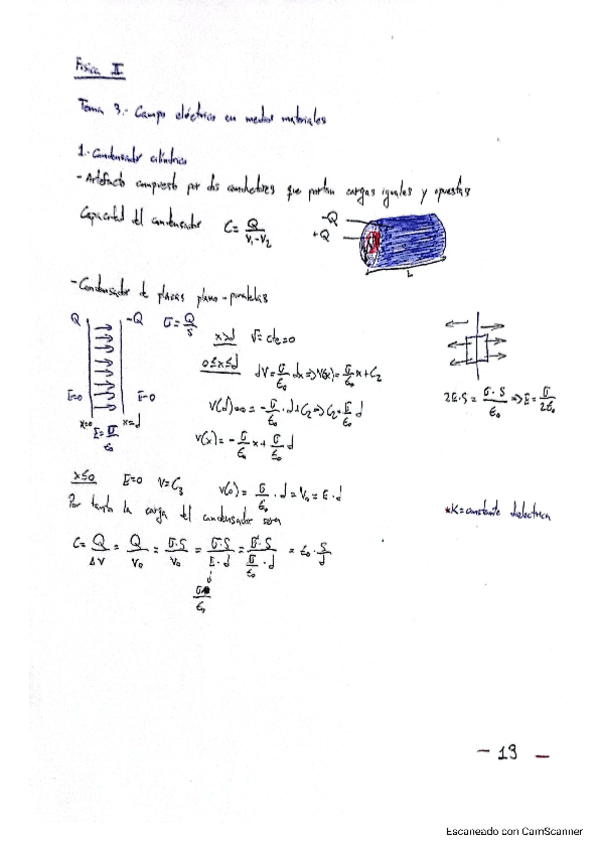 Física II
Tema 3.- Campo eléctrico en medios materiales
1.- Condensador cilíndrico
- Artefacto compuesto por dos conductores que portan cargas iguales y opuestas
Capacidad del condensador C = Q / V₁-V₂
-Q
+Q
L
- Condensador de placas plano-paralelas
Q -Q σ = Q/S
x>d V = cte = 0
0≤x≤d dV = σ/ε₀ dx => V(x) = σ/ε₀ x + C₂
E=0 E=0
x=0 x=d
E = σ/ε₀
V(d) = 0 = -σ/ε₀ · d + C₂ => C₂ = σ/ε₀ d
V(x) = -σ/ε₀ x + σ/ε₀ d
2E·S = σ·S/ε₀ => E = σ/2ε₀
x≤0 E=0 V=C₃ V(0) = σ/ε₀ · d = V₀ = E·d
Por tanto la carga del condensador será
*K = constante dieléctrica
C = Q/ΔV = Q/V₀ = σ·S/V₀ = σ·S/E·d = σ·S/(σ/ε₀ · d) = ε₀ · S/d
σ/ε₀
- 19 -
Escaneado con CamScanner